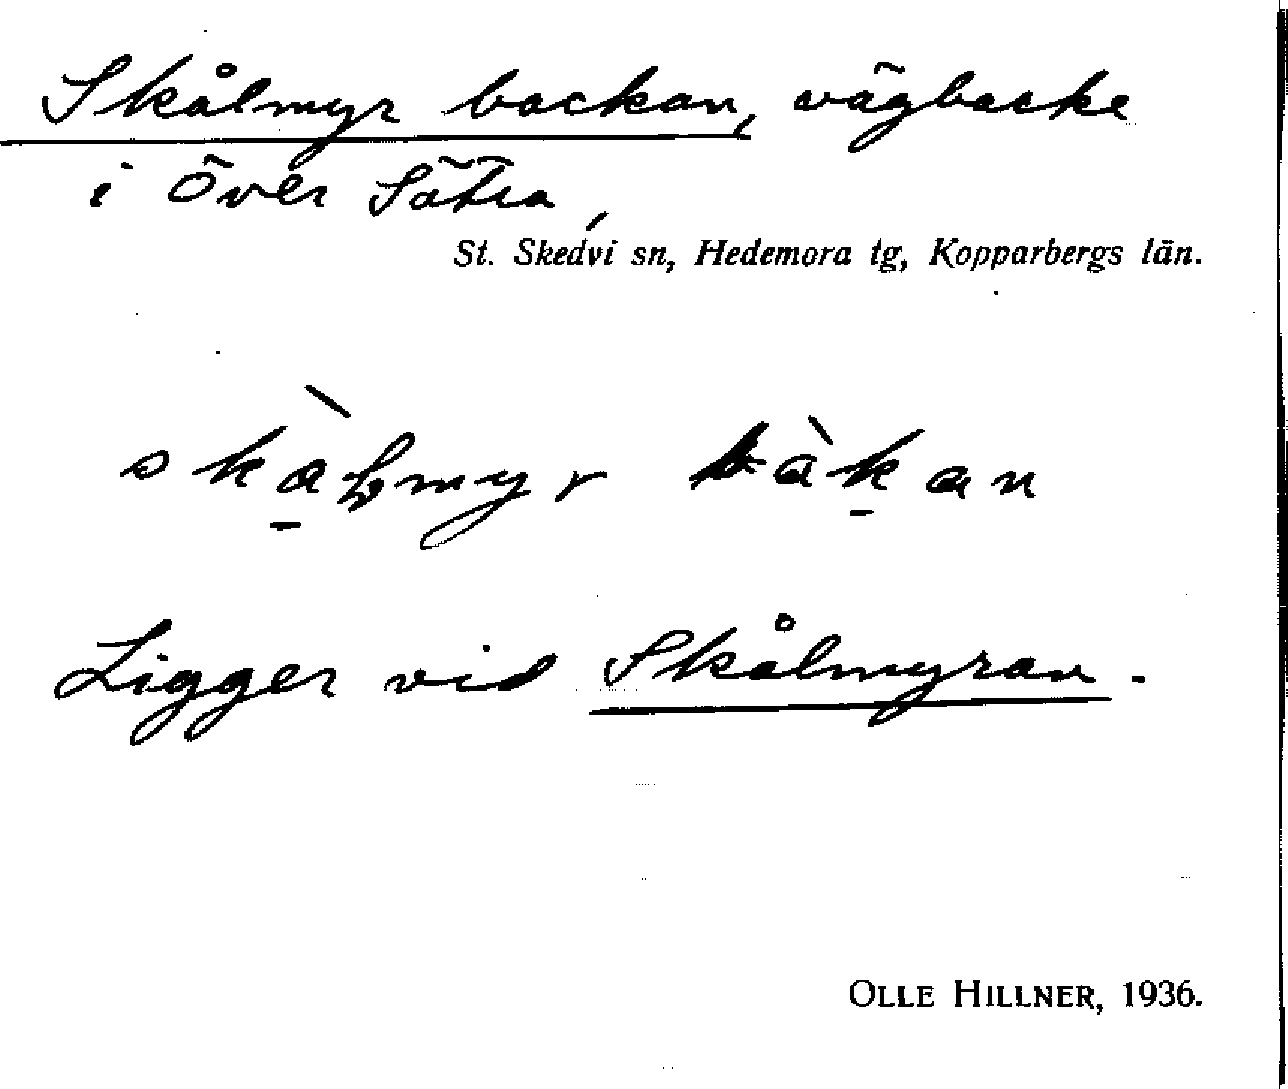 Skålmyr backan, vägbacke
i Över Sätra,
St. Skedvi sn, Hedemora tg, Kopparbergs län.
skàłmyr bàkan
Ligger vid Skålmyran.
OLLE HILLNER, 1936.